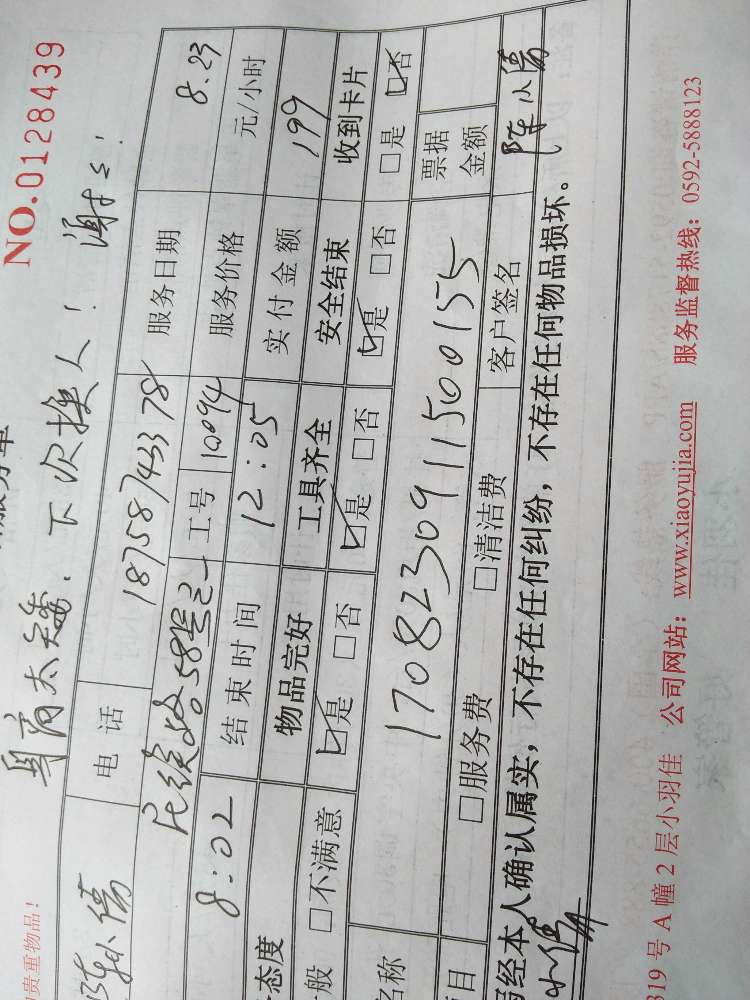 的贵重物品！
NO.0128439
身高太矮．下次换人！谢谢！
电 话 18758743378 服务日期 8.23
58 工号 10094 服务价格 元/小时
8:02 结束时间 12:05 实付金额 199
态度 物品完好 工具齐全 安全结束 收到卡片
般 □不满意 ☑是 □否 ☑是 □否 ☑是 □否 □是 ☑否
名称 170823091500155 票据金额
目 □服务费 □清洁费 客户签名 陈小
经本人确认属实，不存在任何纠纷，不存在任何物品损坏。
319 号 A 幢 2 层小羽佳 公司网站：www.xiaoyujia.com 服务监督热线：0592-5888123